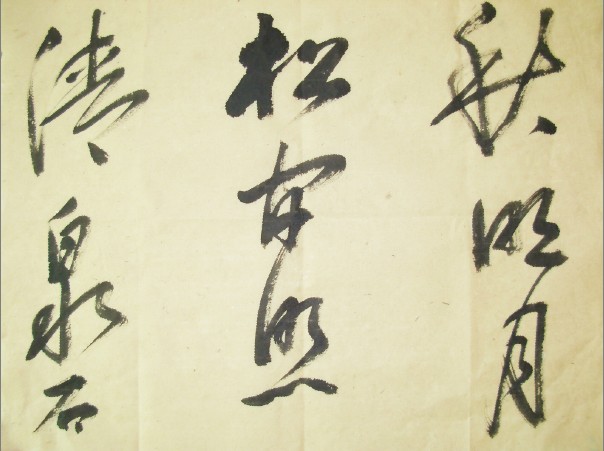 秋明月
松間照
清泉石